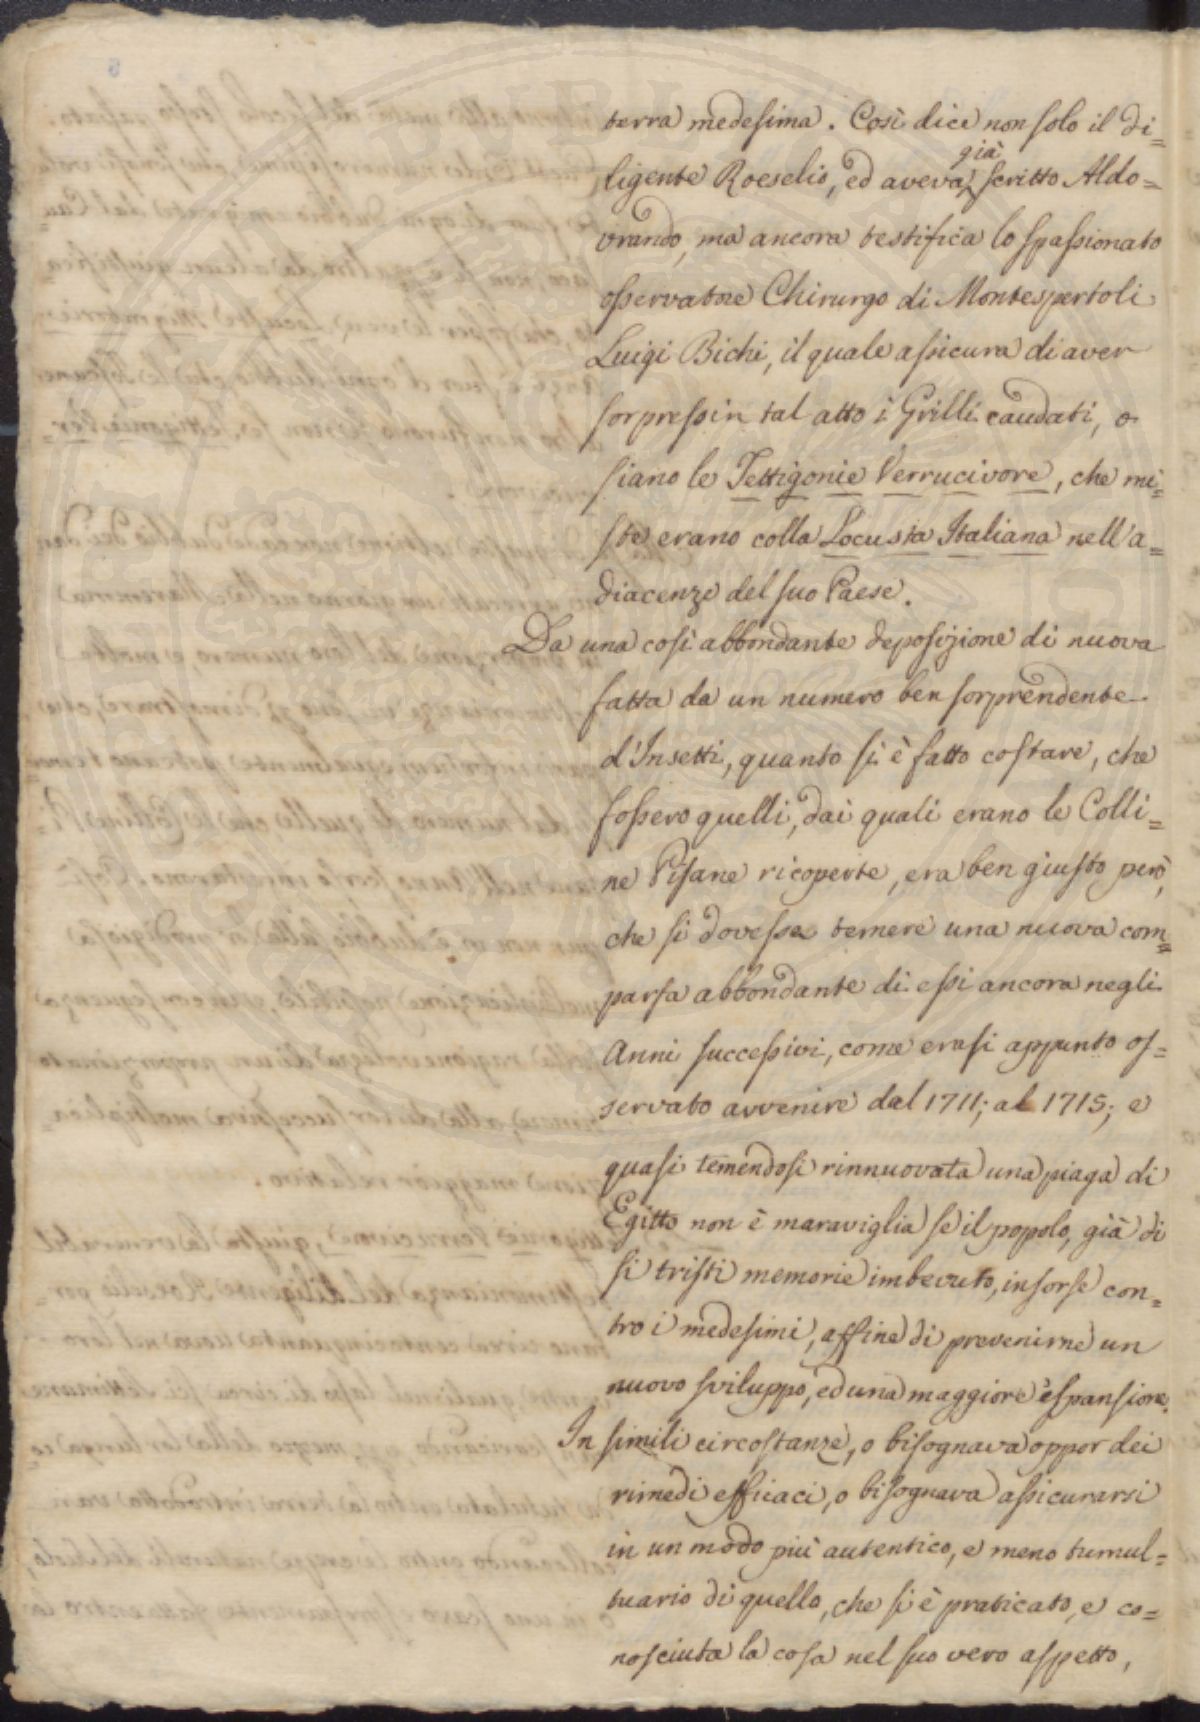 terra medesima. Così dice non solo il di=
ligente Roeselio, ed aveva già scritto Aldo=
vrando, ma ancora testifica lo spassionato
osservatore Chirurgo di Montespertoli
Luigi Bichi, il quale assicura di aver
sorpressi in tal atto i Grilli caudati, o
siano le Tettigonie Verrucivore, che mi=
ste erano colla Locusta Italiana nell'a=
diacenze del suo Paese.
Da una così abbondante deposizione di nuova
fatta da un numero ben sorprendente
d'Insetti, quanto si è fatto costare, che
fossero quelli, dai quali erano le Colli=
ne Pisane ricoperte, era ben giusto però,
che si dovesse temere una nuova com=
parsa abbondante di essi ancora negli
Anni successivi, come erasi appunto os=
servato avvenire dal 1711; al 1715; e
quasi temendosi rinnuovata una piaga di
Egitto non è maraviglia se il popolo, già di
sì tristi memorie imbevuto, insorse con=
tro i medesimi, affine di prevenirne un
nuovo sviluppo, ed una maggiore espansione.
In simili circostanze, o bisognava oppor dei
rimedi efficaci, o bisognava assicurarsi
in un modo più autentico, e meno tumul=
tuario di quello, che si è praticato, e co=
nosciuta la cosa nel suo vero aspetto,